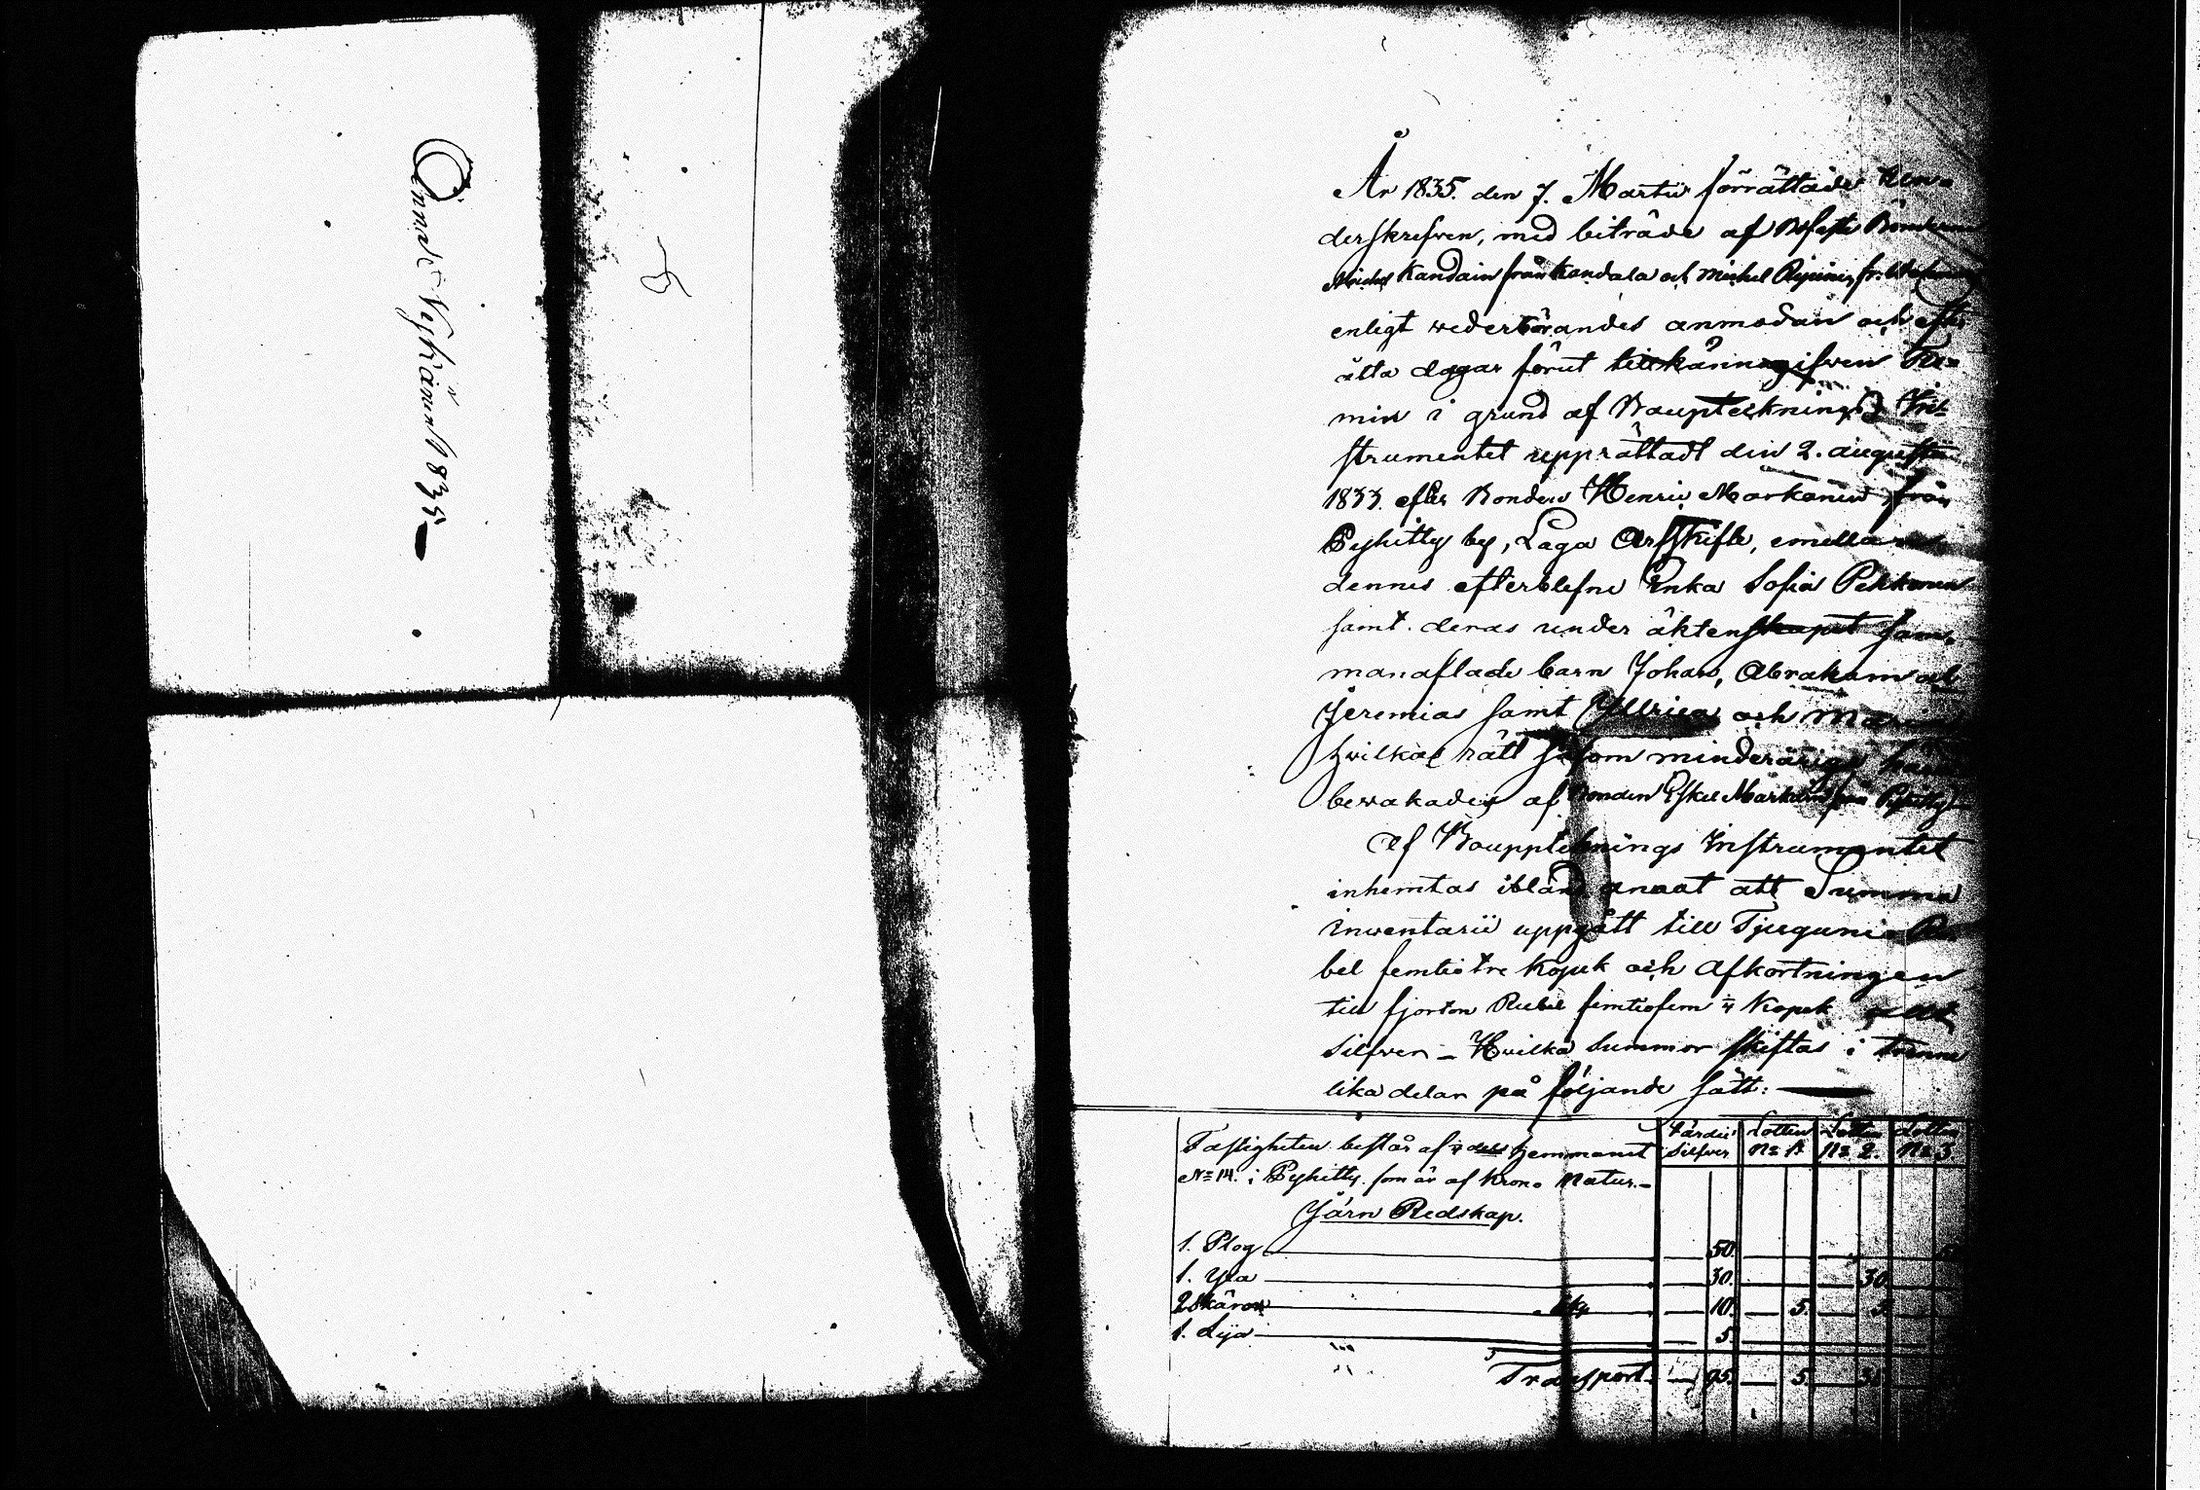 1835
År 1835. den 7. Martii förrättade Un-
derskrefven, med biträde af Bofaste Bönderne
Kandain från Kandala och Michel
enligt wederbörandes anmodan och efter
åtta dagar förut tillkännagifven Ter-
min i grund af Boupteknings In-
strumentet upprättadt den 2. augusti
1833. efter Bonden Henric Markanen från
Pyhitty by, Laga Arfskifte, emellan
dennes efterblefne Enka Sofia Pekkanen
samt deras under äktenskapet sam-
manaflade barn Johan, Abraham och
Jeremias samt Ullrica och
hvilkas rätt såsom minderåriga
bewakades af Bonden Eskel Markanen från Pyhitty
Af Bouppteknings Instrumentet
inhemtas ibland annat att Summa
inwentarii uppgått till Tjuguni Ru-
bel femtiotre kopek och Afkortningen
till fjorton Rubel femtiofem Kopek allt
Silfver - Hvilka Summor skiftas i trenne
lika delar på följande sätt:
Fastigheten består af dels hemmanet Värdie Silfver Lotten No 1. Lotten No 2. Lotten No 3.
No 14. i Pyhitty som är af Krono Natur.-
Järn Redskap.
1. Plog 50.
1. Yxa 30. 30.
2 Skäror 10. 5. 5.
1. Lija 5.
Transport 95. 5. 35.